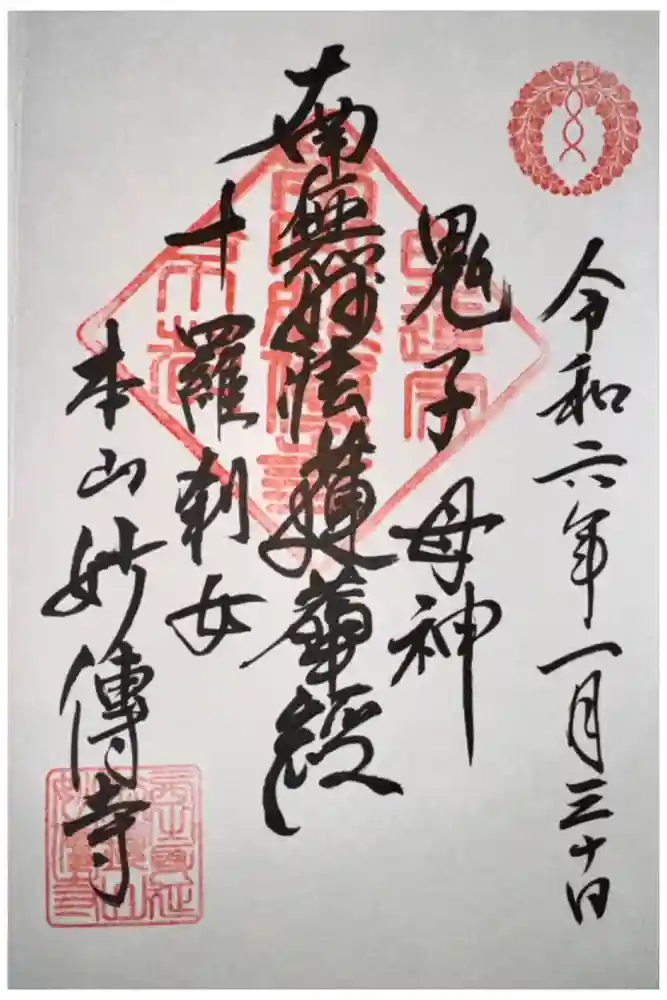 令和六年一月三十日
鬼子母神
南無妙法蓮華経
十羅刹女
本山妙傳寺